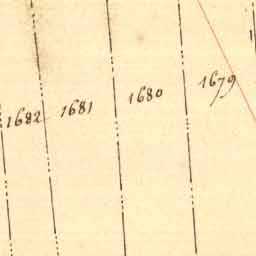 1682 1681 1680 1679